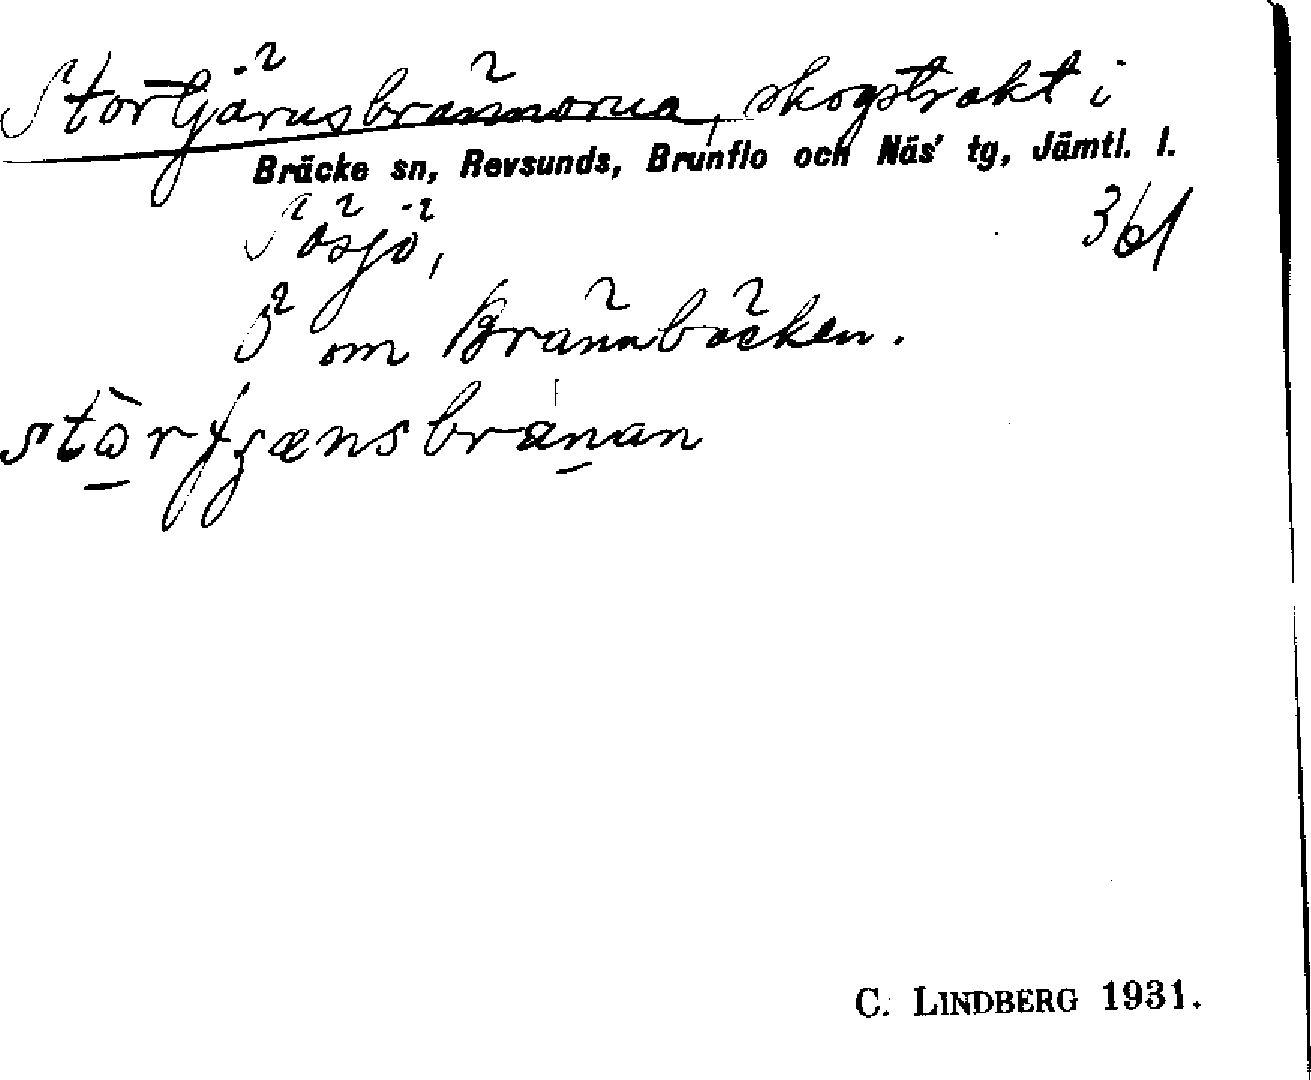 Stortjärnsbrännorna, skogstrakt i
Bräcke sn, Revsunds, Brunflo och Näs' tg, Jämtl. l.
Sösjö, 361
Ö om Brännbäcken.
C. LINDBERG 1931.